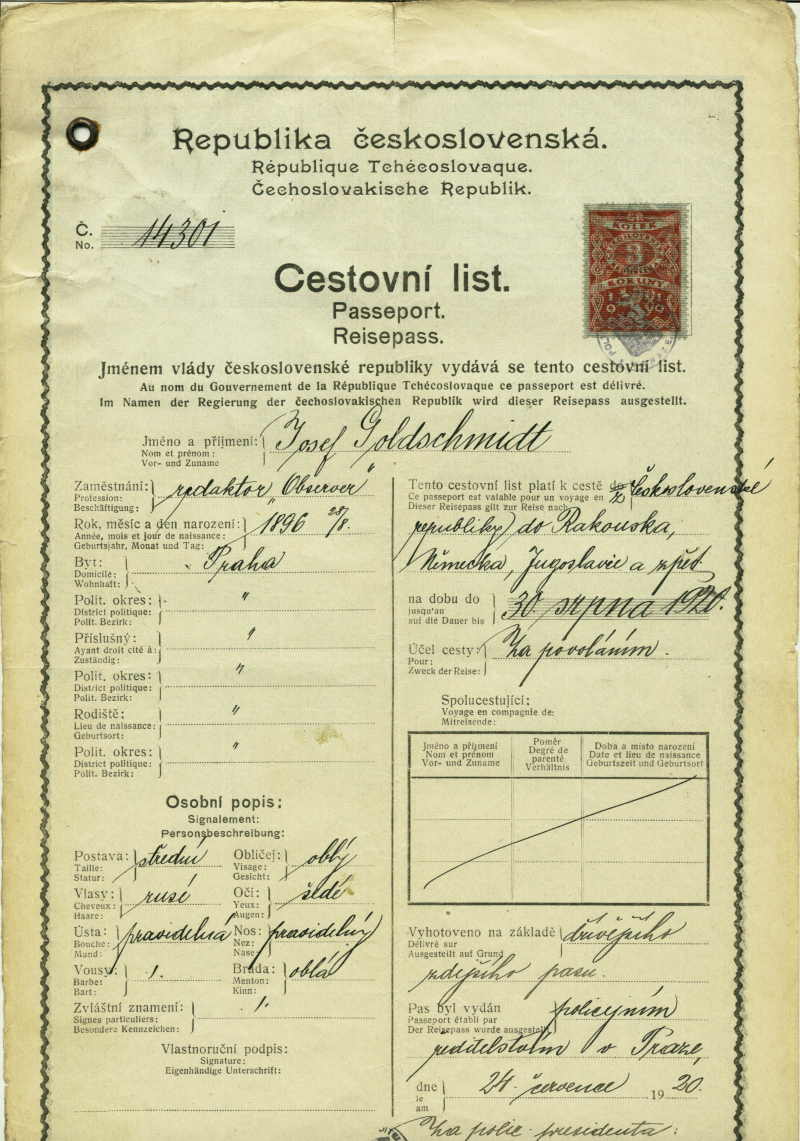 Republika československá.
République Tchécoslovaque.
Čechoslovakische Republik.
Č.
No.
14301
KOLEK
3
KORUNY
1919
Cestovní list.
Passeport.
Reisepass.
Jménem vlády československé republiky vydává se tento cestovní list.
Au nom du Gouvernement de la République Tchécoslovaque ce passeport est délivré.
Im Namen der Regierung der čechoslovakischen Republik wird dieser Reisepass ausgestellt.
Jméno a příjmení: Josef Goldschmidt
Nom et prénom:
Vor- und Zuname
Zaměstnání: redaktor „Observer"
Profession:
Beschäftigung:
Rok, měsíc a den narození: 1896 28/8.
Année, mois et jour de naissance:
Geburtsjahr, Monat und Tag:
Byt: Praha
Domicilé:
Wohnhaft:
Polit. okres: "
District politique:
Polit. Bezirk:
Příslušný: "
Ayant droit cité à:
Zuständig:
Polit. okres: "
District politique:
Polit. Bezirk:
Rodiště: "
Lieu de naissance:
Geburtsort:
Polit. okres: "
District politique:
Polit. Bezirk:
Osobní popis:
Signalement:
Personsbeschreibung:
Postava: střední Obličej: oblý
Taille: Visage:
Statur: Gesicht:
Vlasy: rusé Oči: šedé
Cheveux: Yeux:
Haare: Augen:
Ústa: pravidelná Nos: pravidelný
Bouche: Nez:
Mund: Nase:
Vousy: 1. Brada: oblá
Barbe: Menton:
Bart: Kinn:
Zvláštní znamení: 1.
Signes particuliers:
Besondere Kennzeichen:
Vlastnoruční podpis:
Signature:
Eigenhändige Unterschrift:
Tento cestovní list platí k cestě z Československé
Ce passeport est valable pour un voyage en
Dieser Reisepass gilt zur Reise nach
republiky do Rakouska,
Německa, Jugoslavie a zpět
na dobu do 30. srpna 1920.
jusqu'an
auf die Dauer bis
Účel cesty: Za povoláním.
Pour:
Zweck der Reise:
Spolucestující:
Voyage en compagnie de:
Mitreisende:
Jméno a příjmení Poměr Doba a místo narození
Nom et prénom Degré de parenté Date et lieu de naissance
Vor- und Zuname Verhältnis Geburtszeit und Geburtsort
Vyhotoveno na základě dřívějšího
Délivré sur
Ausgestellt auf Grund
zdejšího pasu.
Pas byl vydán policejním
Passeport établi par
Der Reisepass wurde ausgestellt
ředitelstvím v Praze,
dne 24. července 1920.
le
am
Za polic. presidenta: